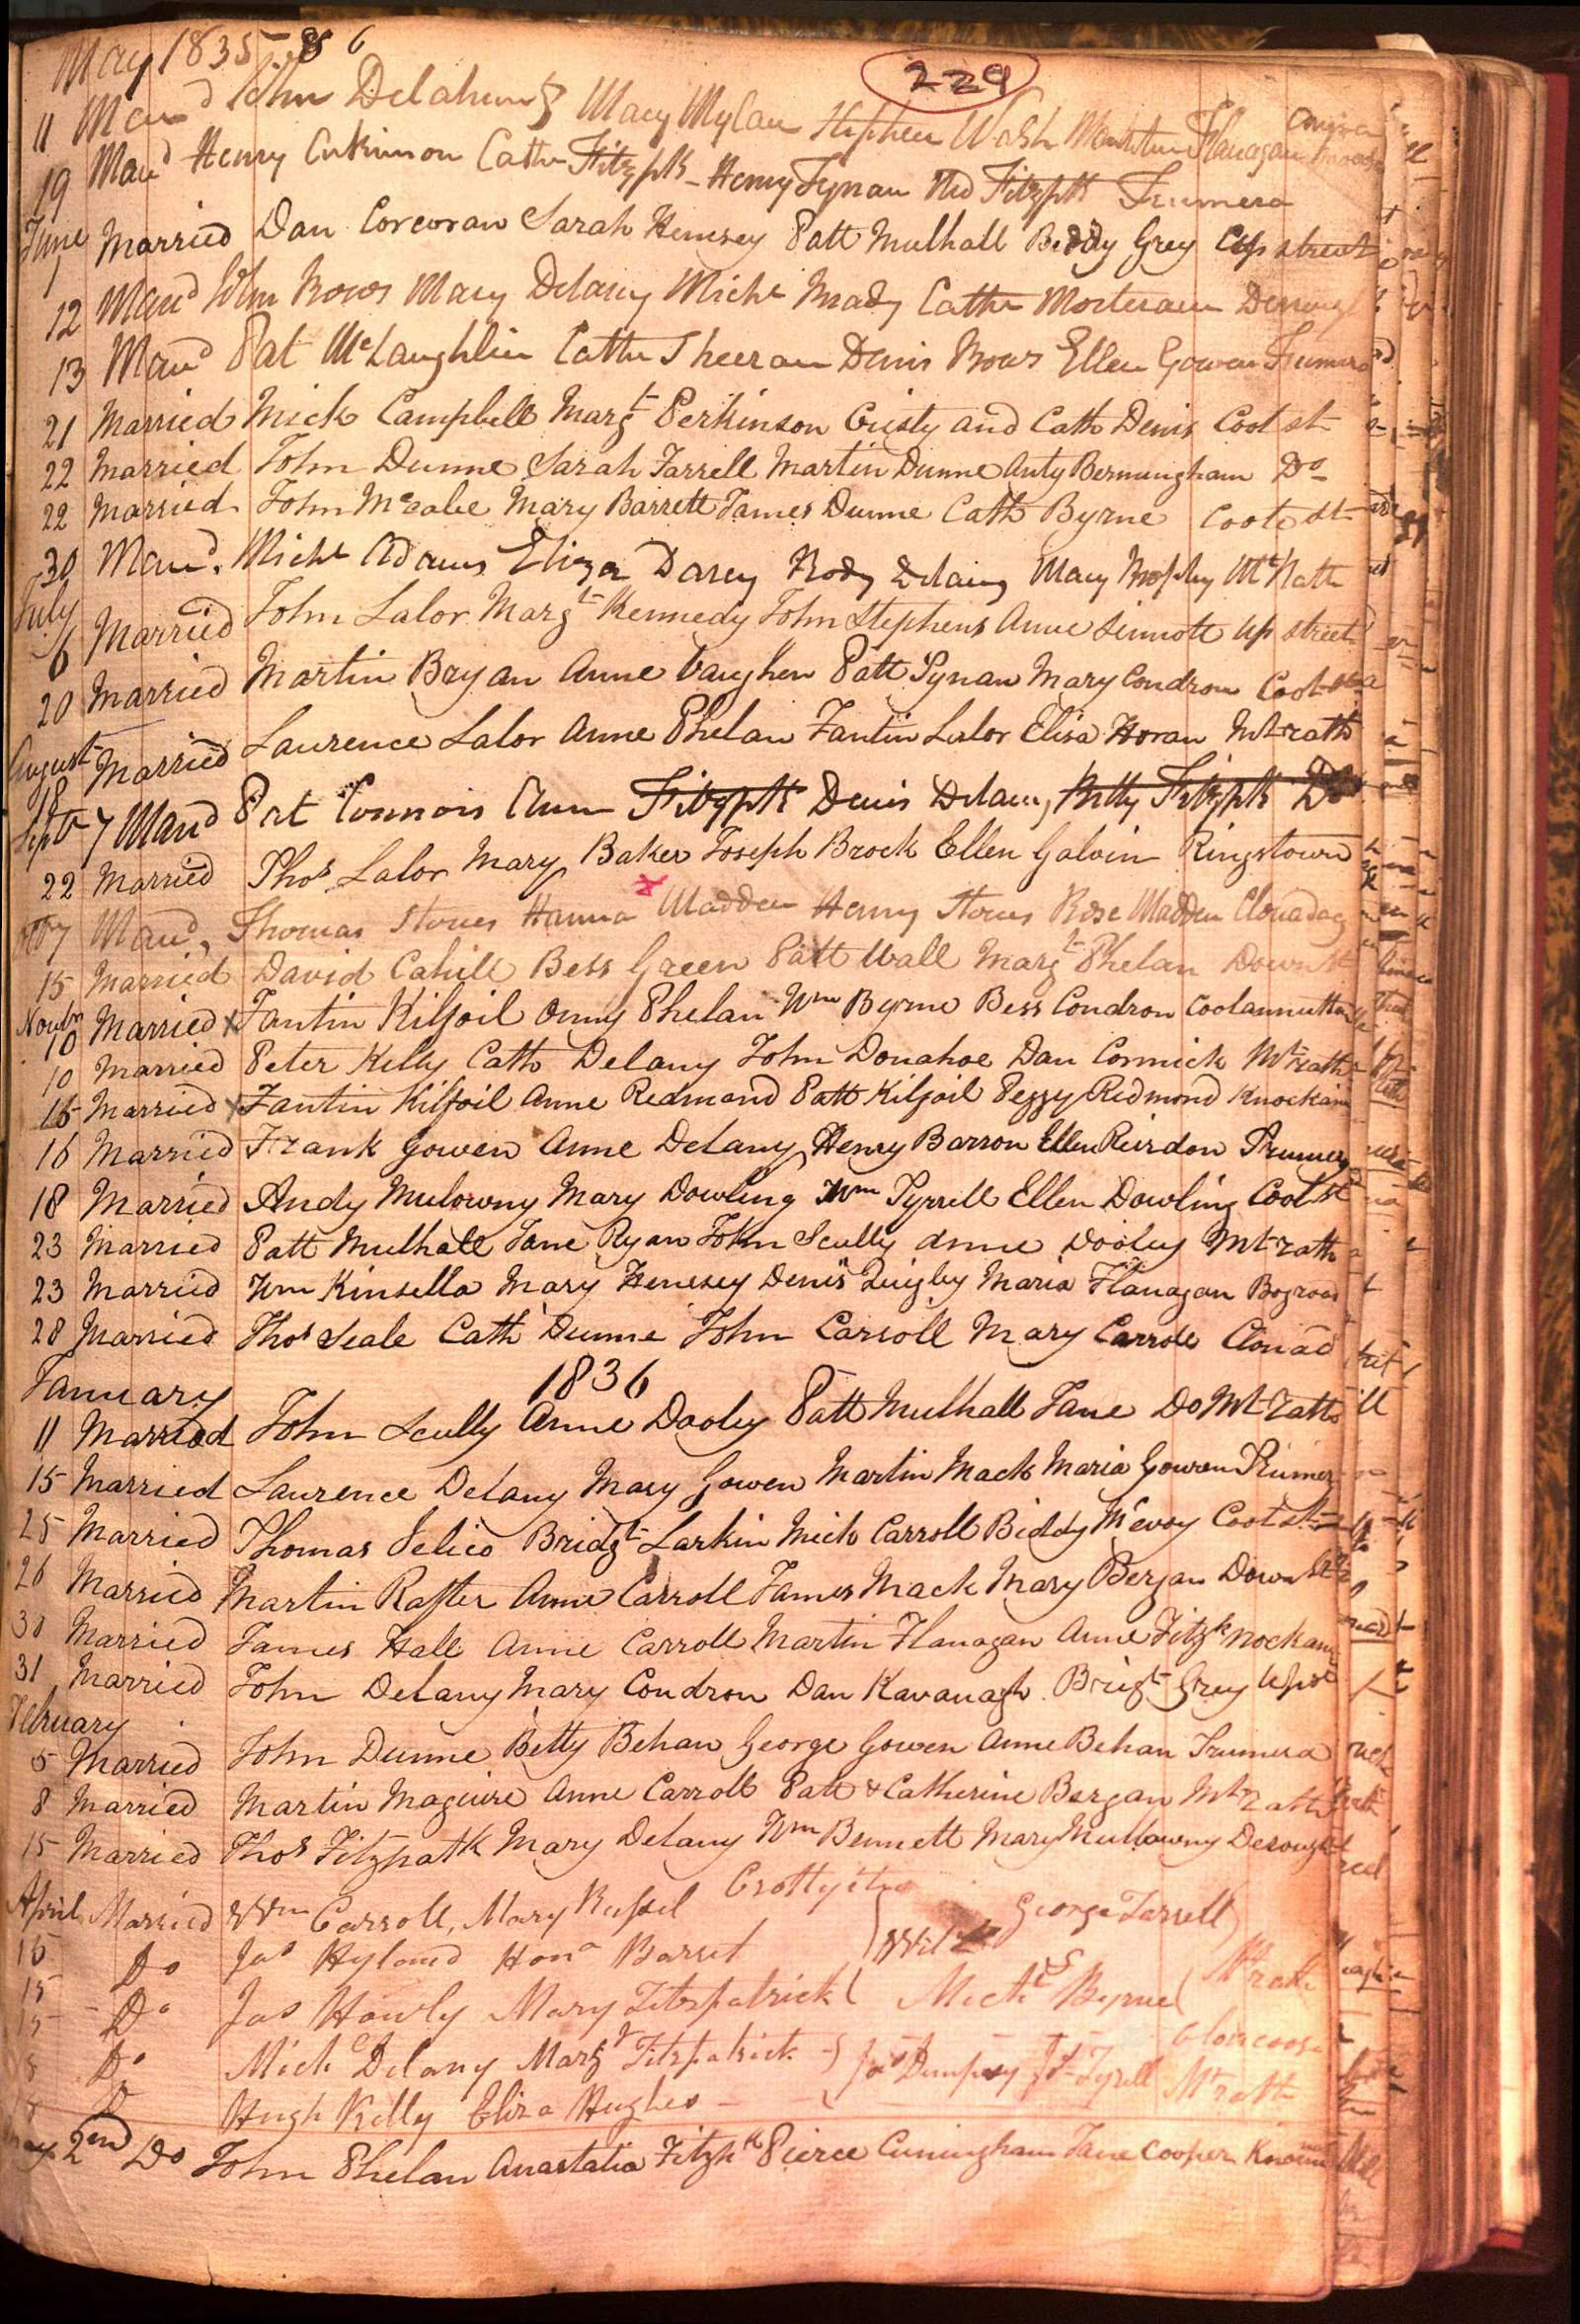 May 1835 & 6
229
11 Mar<sup>d</sup> John Delahunty Mary Mylan Stephen Walsh Flanagan
19 Mar<sup>d</sup> Henry Cath<sup>n</sup> Fitzp<sup>k</sup> - Henry Tynan Fitzp<sup>k</sup> Trumera
June
1 Married Dan Corcoran Sarah Hennsey Patt Mulhall Biddy Grey Up street
12 Mar<sup>d</sup> Mary Delany Mich<sup>l</sup> Cath<sup>n</sup>
13 Mar<sup>d</sup> Pat McLaughlin Cath<sup>n</sup> Sheeran Denis Ellen Gowen Trumera
21 Married Mick Campbell Marg<sup>t</sup> Perkinson Cristy and Cath Denis Coot st
22 Married John Dunne Sarah Farrell Martin Dunne Anty Bermingham D<sup>o</sup>
22 Married John McCabe Mary Barrett James Dunne Cath Byrne Coote st
30 Mar<sup>d</sup>. Mich<sup>l</sup> Adams Eliza Darcy Rody Delany Mary Brophy Mt Rath
July
6 Married John Lalor Marg<sup>t</sup> Kennedy John Stephens Anne Sinnott Up street
20 Married Martin Bryan Anne Vaughen Patt Tynan Mary Condron Coot
August
18 Married Laurence Lalor Anne Phelan Fantin Lalor Elisa Horan Mt-rath
Sept 7 Mar<sup>d</sup> Pat Connors Ann Fitzp<sup>k</sup> Denis Delany, Betty Fitzp<sup>k</sup> D<sup>o</sup>
22 Married Tho<sup>s</sup> Lalor Mary Baker Joseph Brock Ellen Galvin Ringstown
Oct 7 Mar<sup>d</sup>, Thomas Stones Hanna Madden Henry Stones Rose Madden Clonadag
15 Married David Cahill Bess Green Patt Wall Marg<sup>t</sup> Phelan Down St
Novbr
10 Married x Fantin Kilfoil Anny Phelan W<sup>m</sup> Byrne Bess Condron
10 Married Peter Kelly Cath Delany John Donahoe Dan Cormick Mt-rath
16 Married x Fantin Kilfoil Anne Redmond Patt Kilfoil Peggy Redmond
16 Married Frank Gowen Anne Delany Henry Barron Ellen Reirdon Trumera
18 Married Andy Mulowny Mary Dowling W<sup>m</sup> Tyrrell Ellen Dowling Coot St
23 Married Patt Mulhall Jane Ryan John Scully Anne Dooley Mt-rath
23 Married W<sup>m</sup> Kinsella Mary Henesey Denis Quigley Maria Flanagan Bogroad
28 Married Tho<sup>s</sup> Seale Cath Dunne John Carroll Mary Carroll Clonad
1836
January
11 Married John Scully Anne Dooley Patt Mulhall Jane Do Mt-rath
15 Married Laurence Delany Mary Gowen Martin Mack Maria Gowen Trumer
25 Married Thomas Bridg<sup>t</sup> Larkin Mick Carroll Biddy McEvoy Coot st
26 Married Martin Rafter Anne Carroll James Mack Mary Bergan Down St
30 Married James Hall Anne Carroll Martin Flanagan Anne Fitz<sup>k</sup>
31 Married John Delany Mary Condron Dan Kavanagh Brig<sup>t</sup> Grey Up st
February
5 Married John Dunne Betty Behan George Gowen Anne Behan Trumera
8 Married Martin Maguire Anne Carroll Patt & Catherine Bergan Mt-rath
15 Married Tho<sup>s</sup> Fitzpat<sup>k</sup> Mary Delany W<sup>m</sup> Bennett Mary Mullowny
April Married W<sup>m</sup> Carroll, Mary Russel George Farrell
16 D<sup>o</sup> Ja<sup>s</sup> Hyland Hon<sup>a</sup> Barret
15 D<sup>o</sup> Ja<sup>s</sup> Howly Mary Fitzpatrick Mich<sup>l</sup> Byrne Mt rath
D<sup>o</sup> Mich<sup>l</sup> Delany Marg<sup>t</sup> Fitzpatrick Ja<sup>s</sup> Dempsey Tyrell
D<sup>o</sup> Hugh Kelly Eliza Hughes Mt rath
May 2nd D<sup>o</sup> John Phelan Anastatia Fitzp<sup>k</sup> Pierce Cuningham Jane Cooper